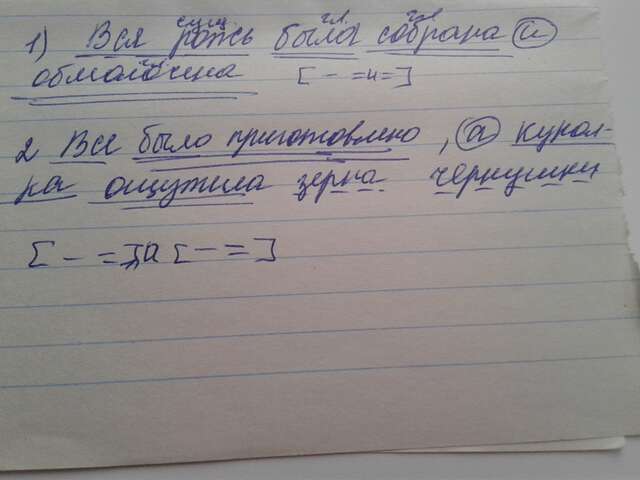 сущ гл гл
1) Вся рожь была собрана и
обмолочена [ - = и = ]
2 Все было приготовлено, а Кура-
ка ощутила зерна чернушки
[ - = ], а [ - = ]